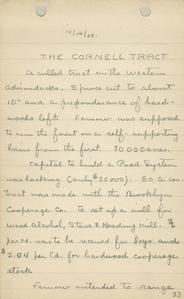 THE CORNELL TRACT
A culled tract in the Western
Adirondacks. Spruce cut to about
10" and a preponderance of hard-
woods left. Fernow was supposed
to run the forest on a self-supporting
basis from the first. 30000 acres.
Capital to build a Road System
was lacking (only $30,000). So a con-
tract was made with the Brooklyn
Cooperage Co. to set up a mill for
Wood Alcohol, Stave & Heading Mill.
per M. was to be received for logs and
$2.84 per Cd. for hardwood cooperage
stock.
Fernow intended to range
33